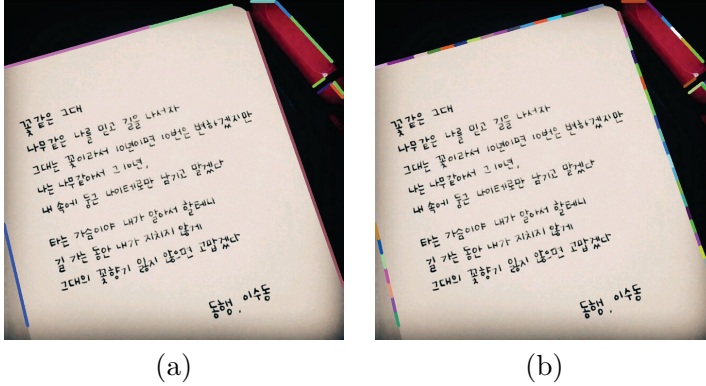 꽃 같은 그대
나무같은 나를 믿고 길을 나서자
그대는 꽃이라서 10년이면 10번은 변하겠지만
나는 나무같아서 그 10년,
내 속에 둥근 나이테로만 남기고 말겠다
타는 가슴이야 내가 알아서 할테니
길 가는 동안 내가 지치지 않게
그대의 꽃향기 잃지 않으면 고맙겠다
동행, 이수동
(a)
꽃 같은 그대
나무같은 나를 믿고 길을 나서자
그대는 꽃이라서 10년이면 10번은 변하겠지만
나는 나무같아서 그 10년,
내 속에 둥근 나이테로만 남기고 말겠다
타는 가슴이야 내가 알아서 할테니
길 가는 동안 내가 지치지 않게
그대의 꽃향기 잃지 않으면 고맙겠다
동행, 이수동
(b)